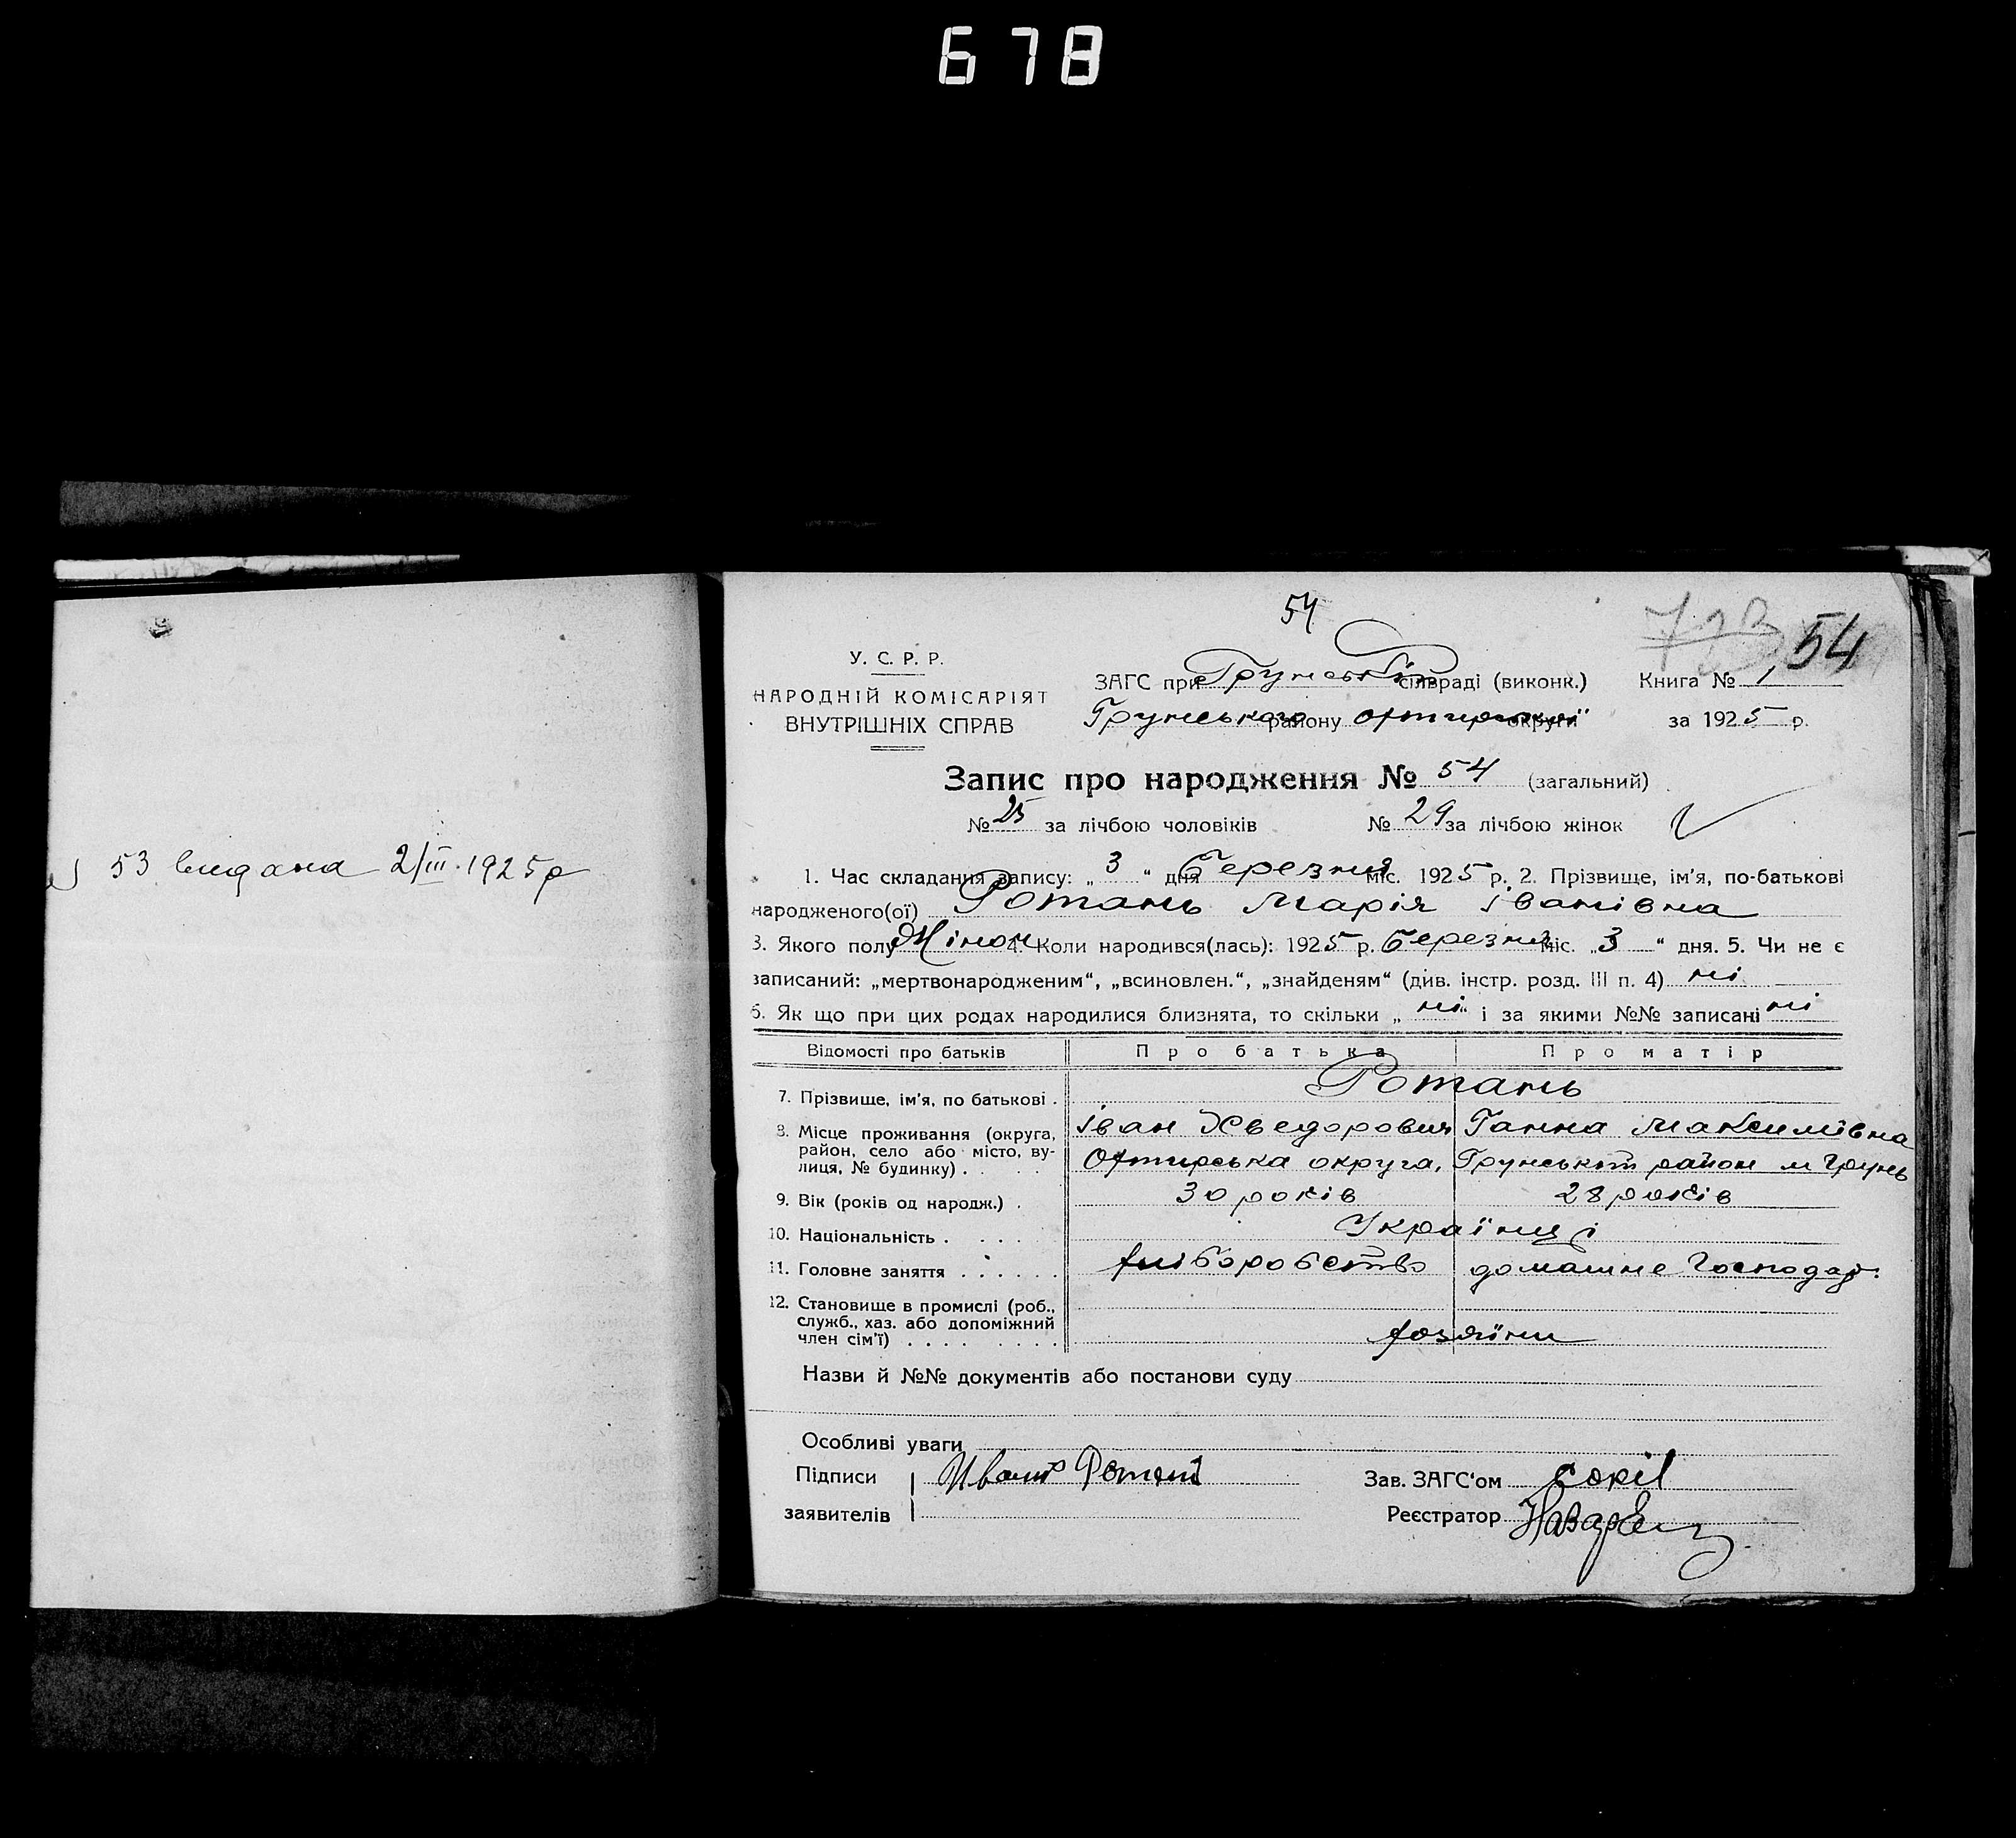 678
№ 53 видана 2/III. 1925 р
54
723 54
У. С. Р. Р.
НАРОДНІЙ КОМІСАРІЯТ
ВНУТРІШНІХ СПРАВ
ЗАГС при Грунській сільраді (виконк.) Книга № 1
Грунського району Охтирської округи за 1925 р.
Запис про народження № 54 (загальний)
№ 25 за лічбою чоловіків № 29 за лічбою жінок
1. Час складання запису: „ 3 “ дня Березня міс. 1925 р. 2. Прізвище, ім'я, по-батькові
народженого(ої) Ротань Марія Іванівна
3. Якого полу Жіноч 4. Коли народився(лась): 1925 р. Березня міс. „ 3 “ дня. 5. Чи не є
записаний: „мертвонародженим“, „всиновлен.“, „знайденям“ (див. інстр. розд. III п. 4) ні
6. Як що при цих родах народилися близнята, то скільки „ ні “ і за якими №№ записані ні
Відомості про батьків Про батька Про матір
Ротань
7. Прізвище, ім'я, по батькові .
Іван Хведорович Ганна Максимівна
8. Місце проживання (округа,
район, село або місто, ву-
лиця, № будинку) . . . .
Охтирська округа, Грунський район м Грунь
9. Вік (років од народж.) . 30 років 28 років
10. Національність . . . . . Українці
11. Головне заняття . . . . . . хліборобство домашне Господар.
12. Становище в промислі (роб.,
служб., хаз. або допоміжний
член сім'ї) . . . . . . . . хозяїни
Назви й №№ документів або постанови суду
Особливі уваги
Підписи Иванъ Ротань Зав. ЗАГС'ом
заявителів Реєстратор